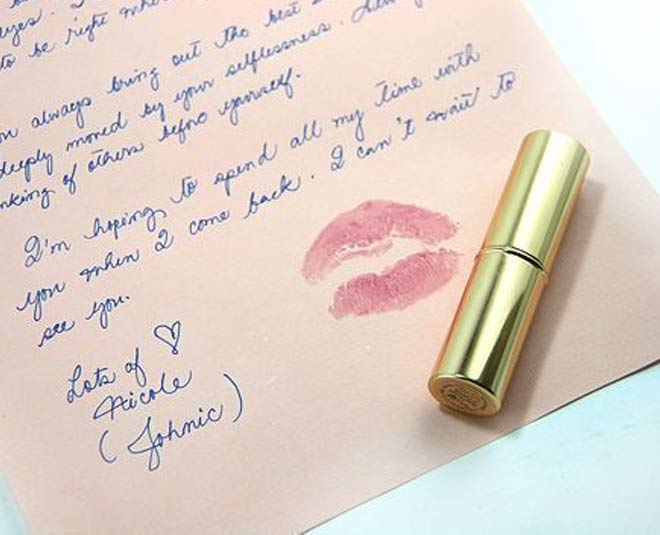 eyes. I
to be right when
you always bring out the best
deeply moved by your selflessness.
nking of others before yourself.
I'm hoping to spend all my time with
you when I come back. I can't wait to
see you.
Lots of ♡
Nicole
(Johnic)